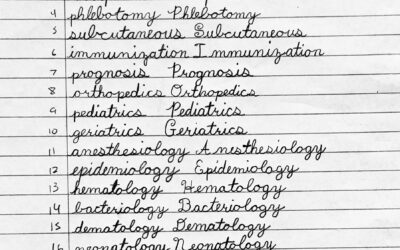 4 phlebotomy Phlebotomy
5 subcutaneous Subcutaneous
6 immunization Immunization
7 prognosis Prognosis
8 orthopedics Orthopedics
9 pediatrics Pediatrics
10 geriatrics Geriatrics
11 anesthesiology Anesthesiology
12 epidemiology Epidemiology
13 hematology Hematology
14 bacteriology Bacteriology
15 dematology Dematology
16 neonatology Neonatology